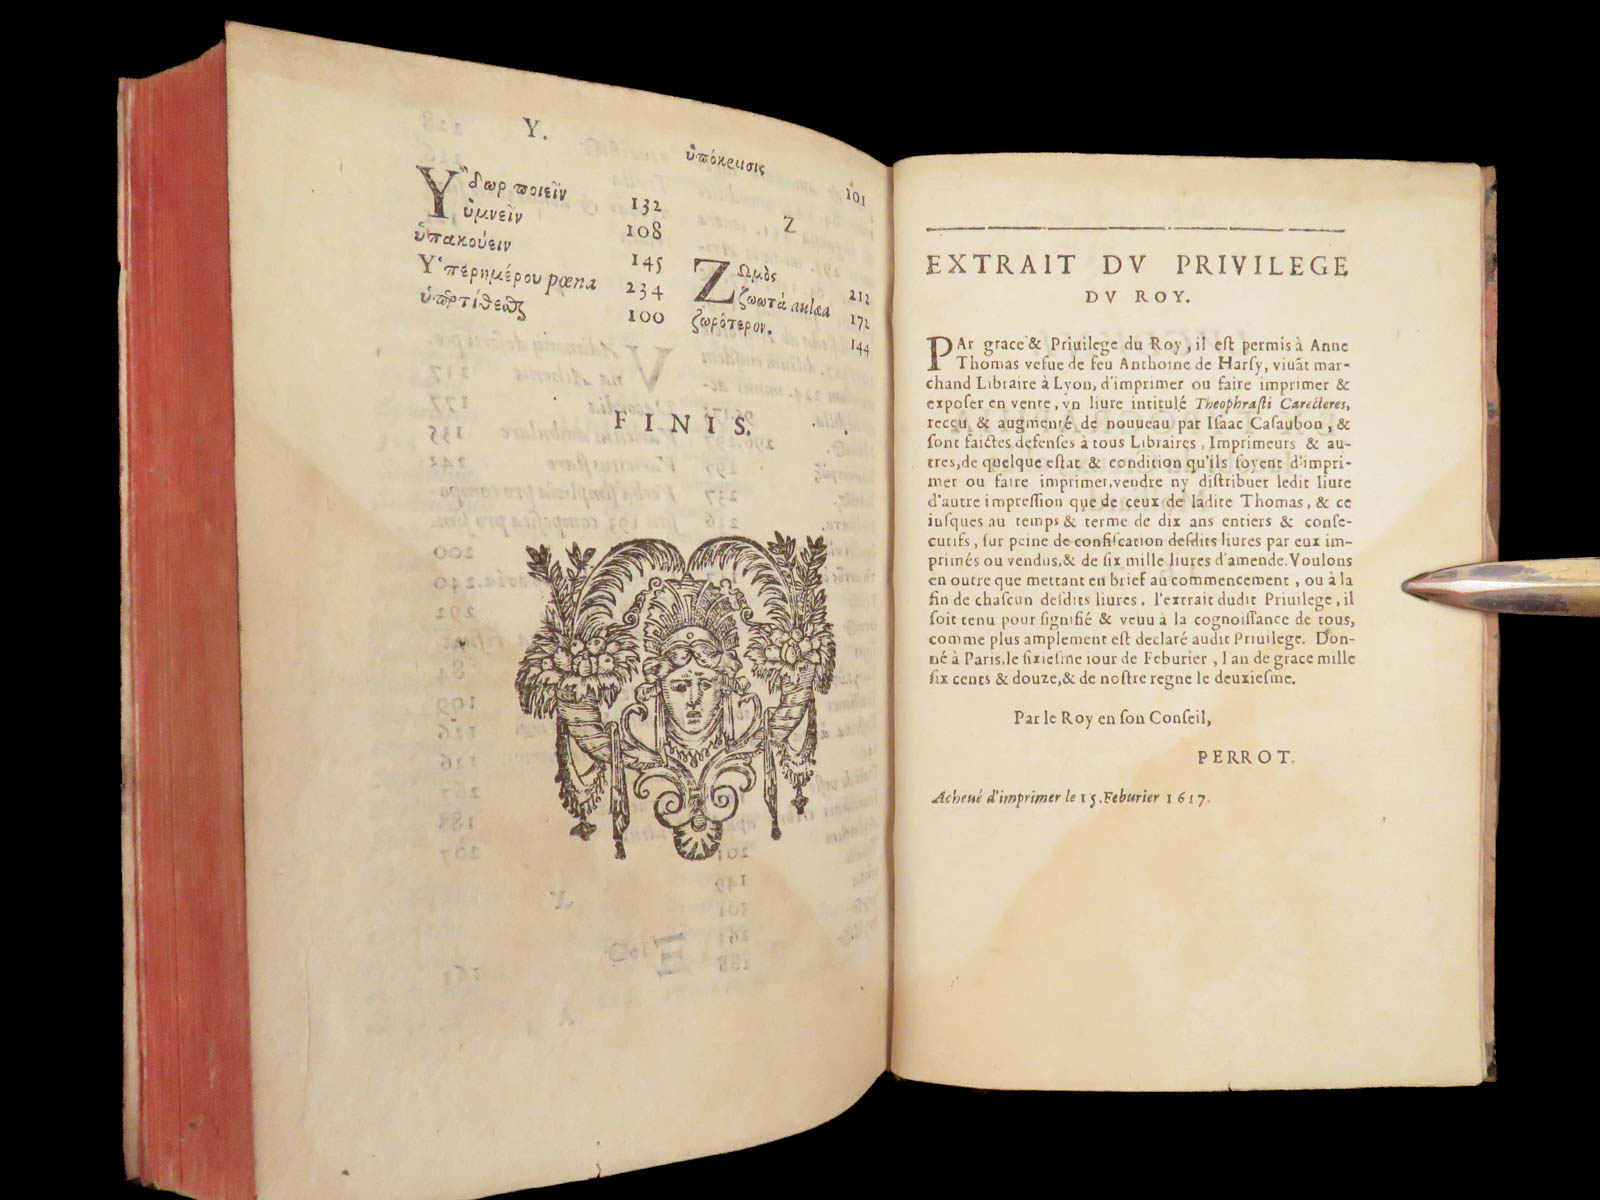 Y.
Ὕδωρ ποιεῖν 132
ὑμνεῖν 108
ὑπακούειν 145
Ὑπερημέρου pœna 234
100
ὑπόκρισις 101
Z
Ζωμὸς 212
ζωωτὰ aulæa 172
ζωρότερον. 144
FINIS.
EXTRAIT DV PRIVILEGE
DV ROY.
PAr grace & Priuilege du Roy, il eſt permis à Anne
Thomas vefue de feu Anthoine de Harſy, viuāt mar-
chand Libraire à Lyon, d'imprimer ou faire imprimer &
expoſer en vente, vn liure intitulé Theophraſti Carecteres,
reçeu & augmenté de nouueau par Iſaac Caſaubon, &
ſont faictes defenſes à tous Libraires, Imprimeurs & au-
tres, de quelque eſtat & condition qu'ils ſoyent d'impri-
mer ou faire imprimer, vendre ny diſtribuer ledit liure
d'autre impreſſion que de ceux de ladite Thomas, & ce
iuſques au temps & terme de dix ans entiers & conſe-
cutifs, ſur peine de confiſcation deſdits liures par eux im-
primés ou vendus, & de ſix mille liures d'amende. Voulons
en outre que mettant en brief au commencement, ou à la
fin de chaſcun deſdits liures, l'extrait dudit Priuilege, il
ſoit tenu pour ſignifié & veuu à la cognoiſſance de tous,
comme plus amplement eſt declaré audit Priuilege. Don-
né à Paris, le ſixieſme iour de Feburier, l'an de grace mille
ſix cents & douze, & de noſtre regne le deuxieſme.
Par le Roy en ſon Conſeil,
PERROT.
Acheué d'imprimer le 15. Feburier 1617.